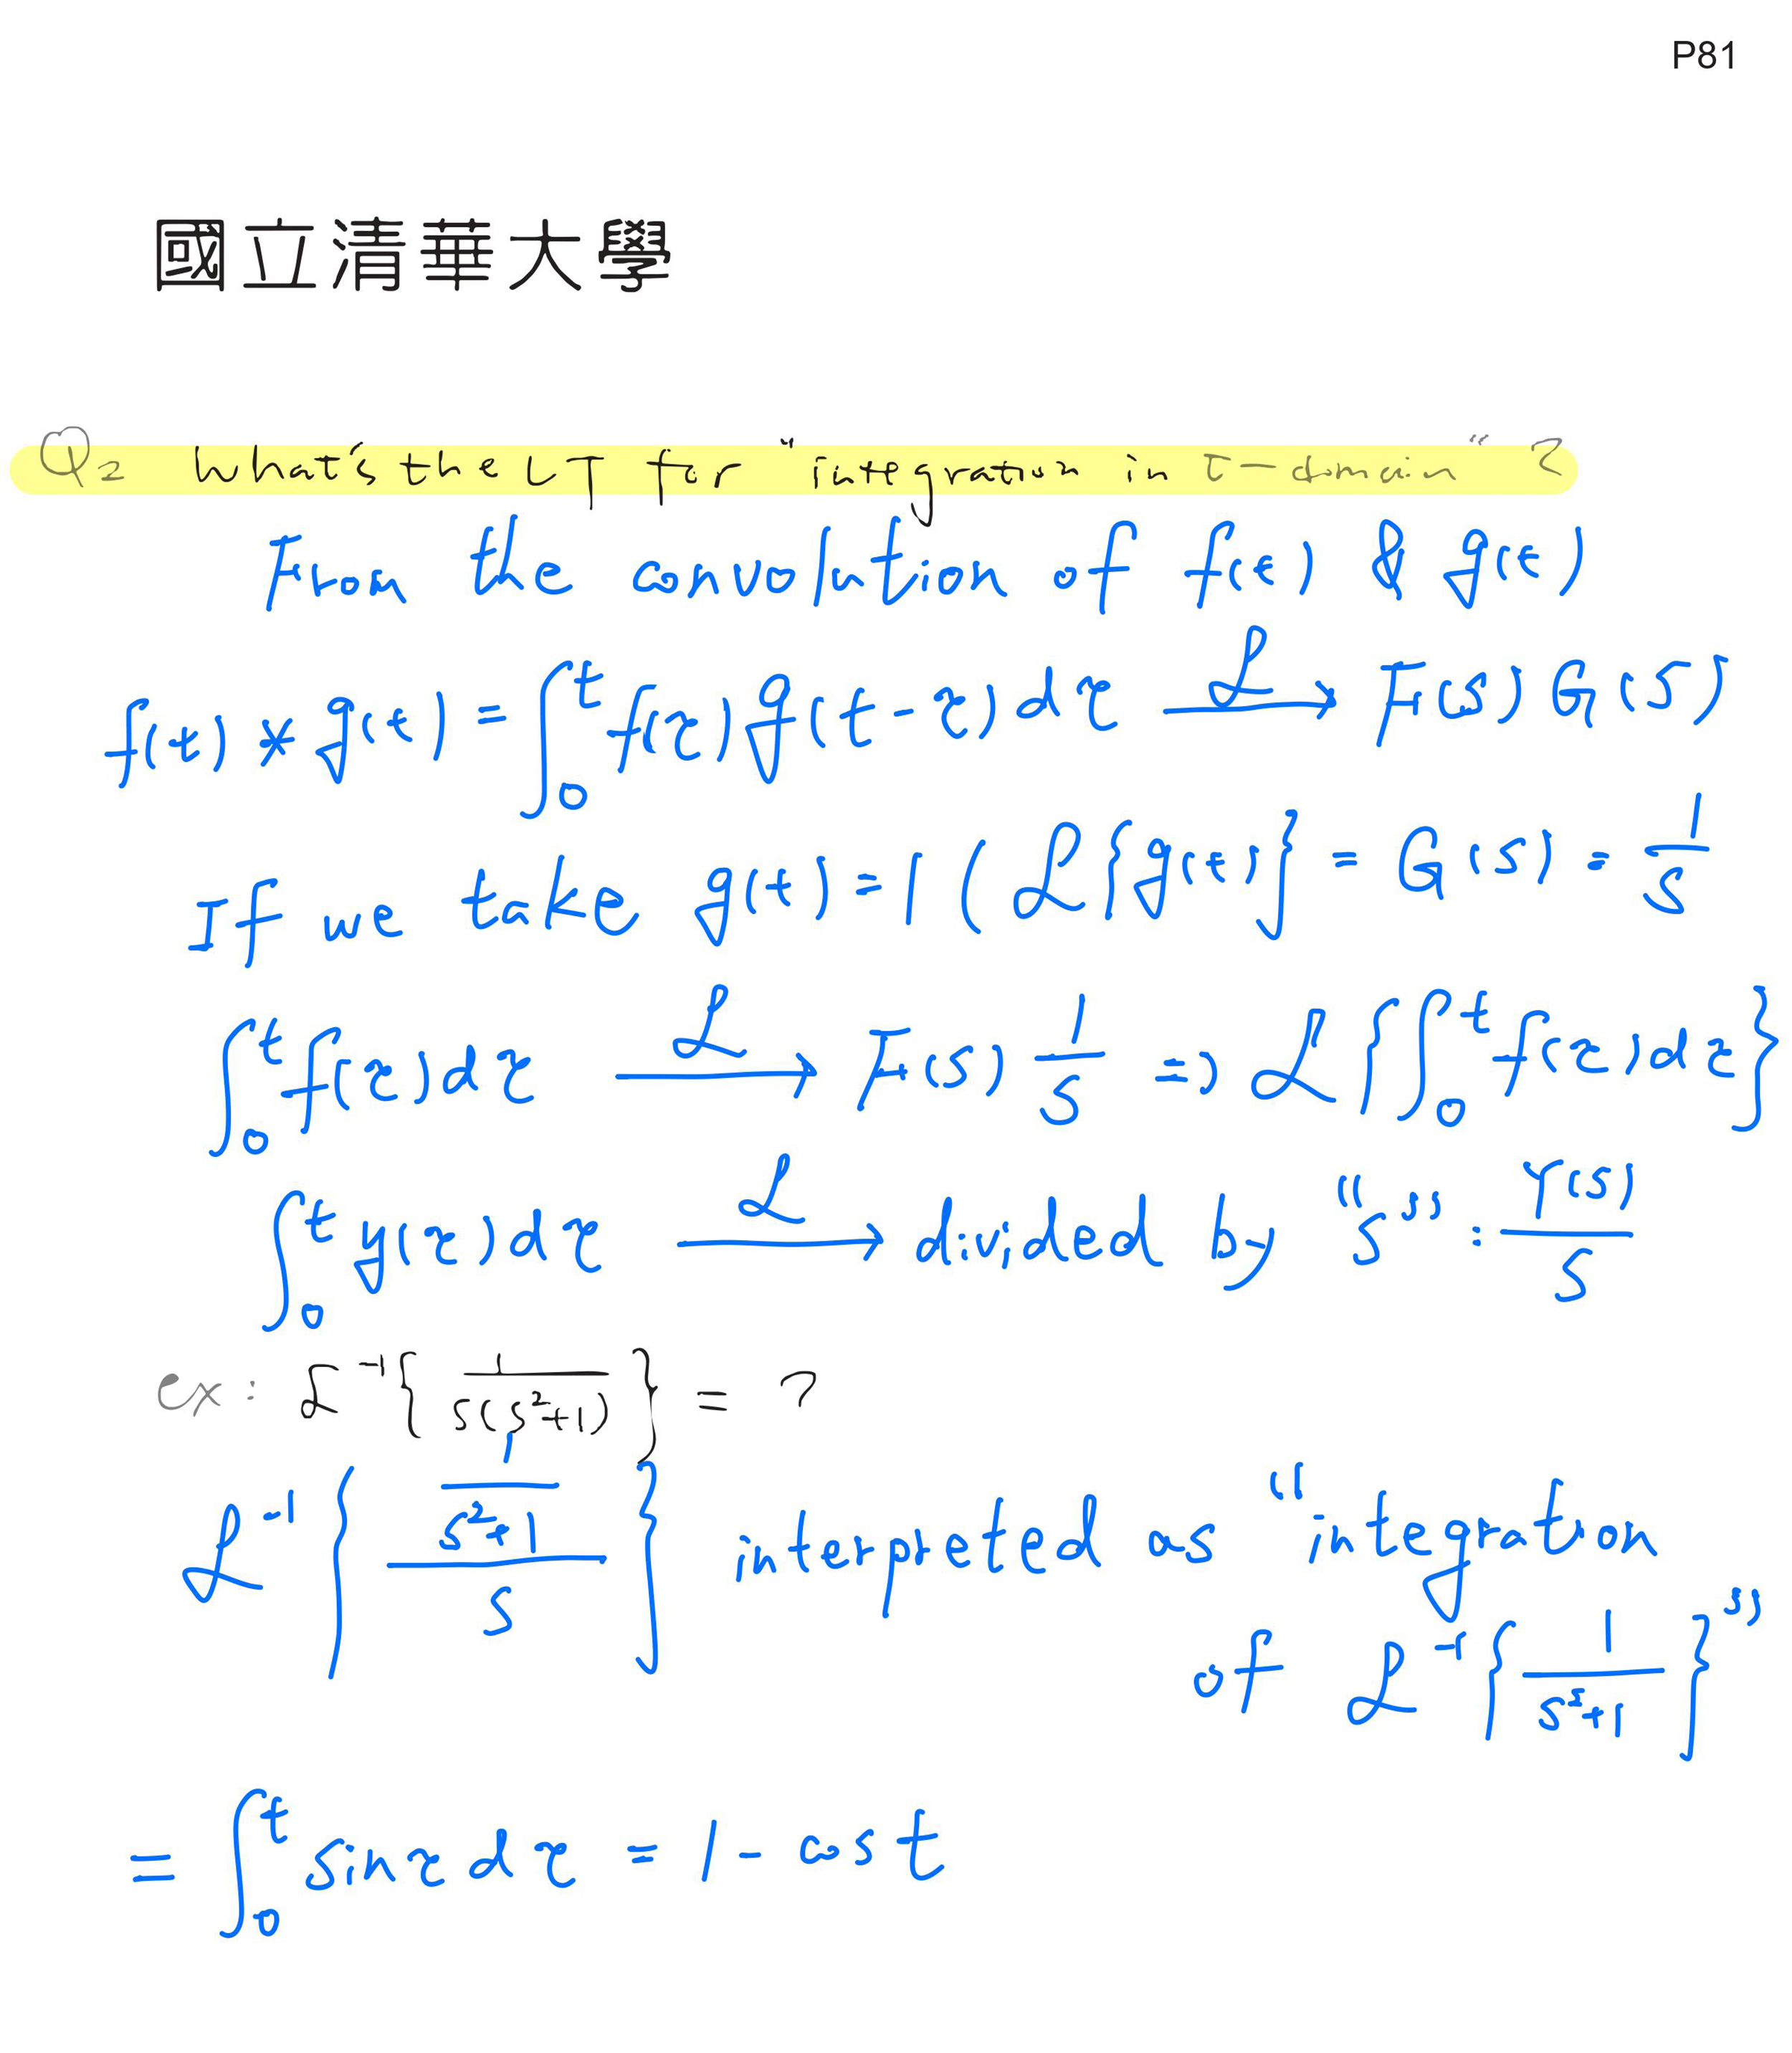 P81
國立清華大學
Q2 What's the LT for "integration in t-domain" ?
From the convolution of f(t) & g(t)
f(t) * g(t) = ∫₀ᵗ f(τ) g(t-τ) dτ —ℒ→ F(s) G(s)
If we take g(t) = 1 ( ℒ{g(t)} = G(s) = 1/s
∫₀ᵗ f(τ) dτ —ℒ→ F(s) 1/s => ℒ{∫₀ᵗ f(τ) dτ}
∫₀ᵗ y(τ) dτ —ℒ→ divided by "s" : Y(s)/s
ex : ℒ⁻¹{ 1/(s(s²+1)) } = ?
ℒ⁻¹{ (1/(s²+1))/s } interpreted as "integration
of ℒ⁻¹{ 1/(s²+1) }"
= ∫₀ᵗ sin τ dτ = 1 - cos t